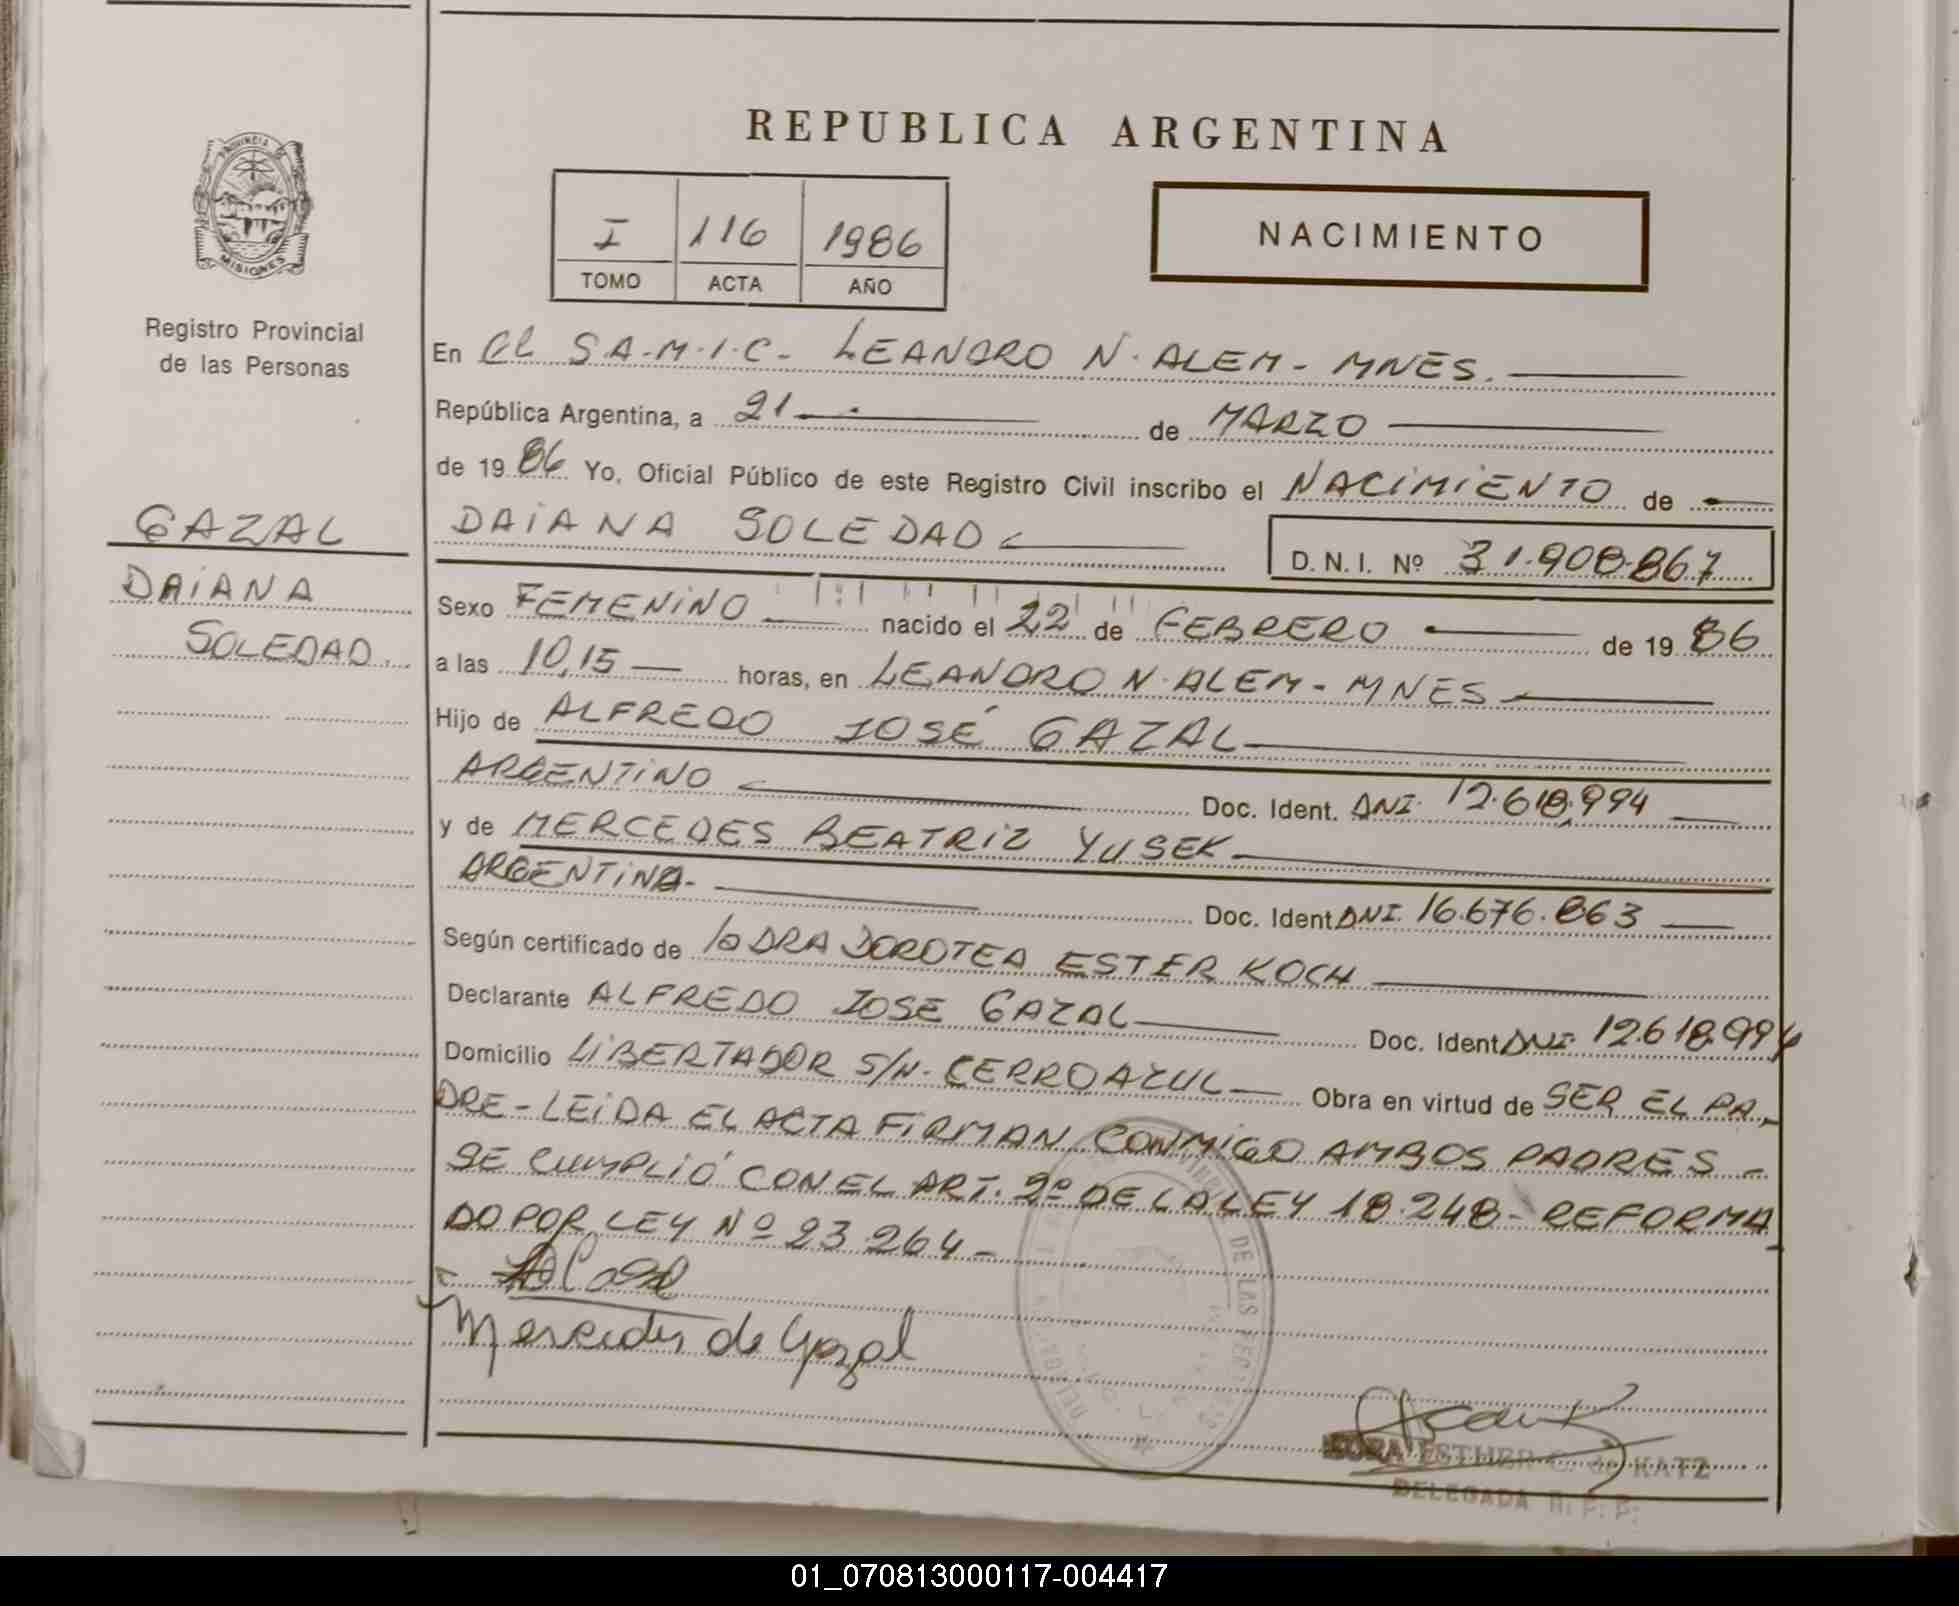 REPUBLICA ARGENTINA
PROVINCIA DE
MISIONES
Registro Provincial
de las Personas
I 116 1986
TOMO ACTA AÑO
NACIMIENTO
En EL S.A.M.I.C. LEANDRO N. ALEM - MNES.
República Argentina, a 21 de MARZO
de 19 86 Yo, Oficial Público de este Registro Civil inscribo el NACIMIENTO de
GAZAL
DAIANA
SOLEDAD
DAIANA SOLEDAD
D.N.I. Nº 31.908.867
Sexo FEMENINO nacido el 22 de FEBRERO de 19 86
a las 10,15 horas, en LEANDRO N. ALEM - MNES
Hijo de ALFREDO JOSÉ GAZAL
ARGENTINO Doc. Ident. DNI. 12.618.994
y de MERCEDES BEATRIZ YUSEK
ARGENTINA- Doc. Ident DNI. 16.676.863
Según certificado de la DRA DOROTEA ESTER KOCH
Declarante ALFREDO JOSE GAZAL Doc. Ident DNI 12.618.994
Domicilio LIBERTADOR S/N- CERRO AZUL Obra en virtud de SER EL PA-
DRE - LEIDA EL ACTA FIRMAN CONMIGO AMBOS PADRES -
SE CUMPLIÓ CON EL ART. 2º DE LA LEY 18.248 - REFORMA
DO POR LEY Nº 23.264 -
Mercedes de Gazal
DE LAS
ESTHER C. de KATZ
DELEGADA R. P. P.
01_070813000117-004417